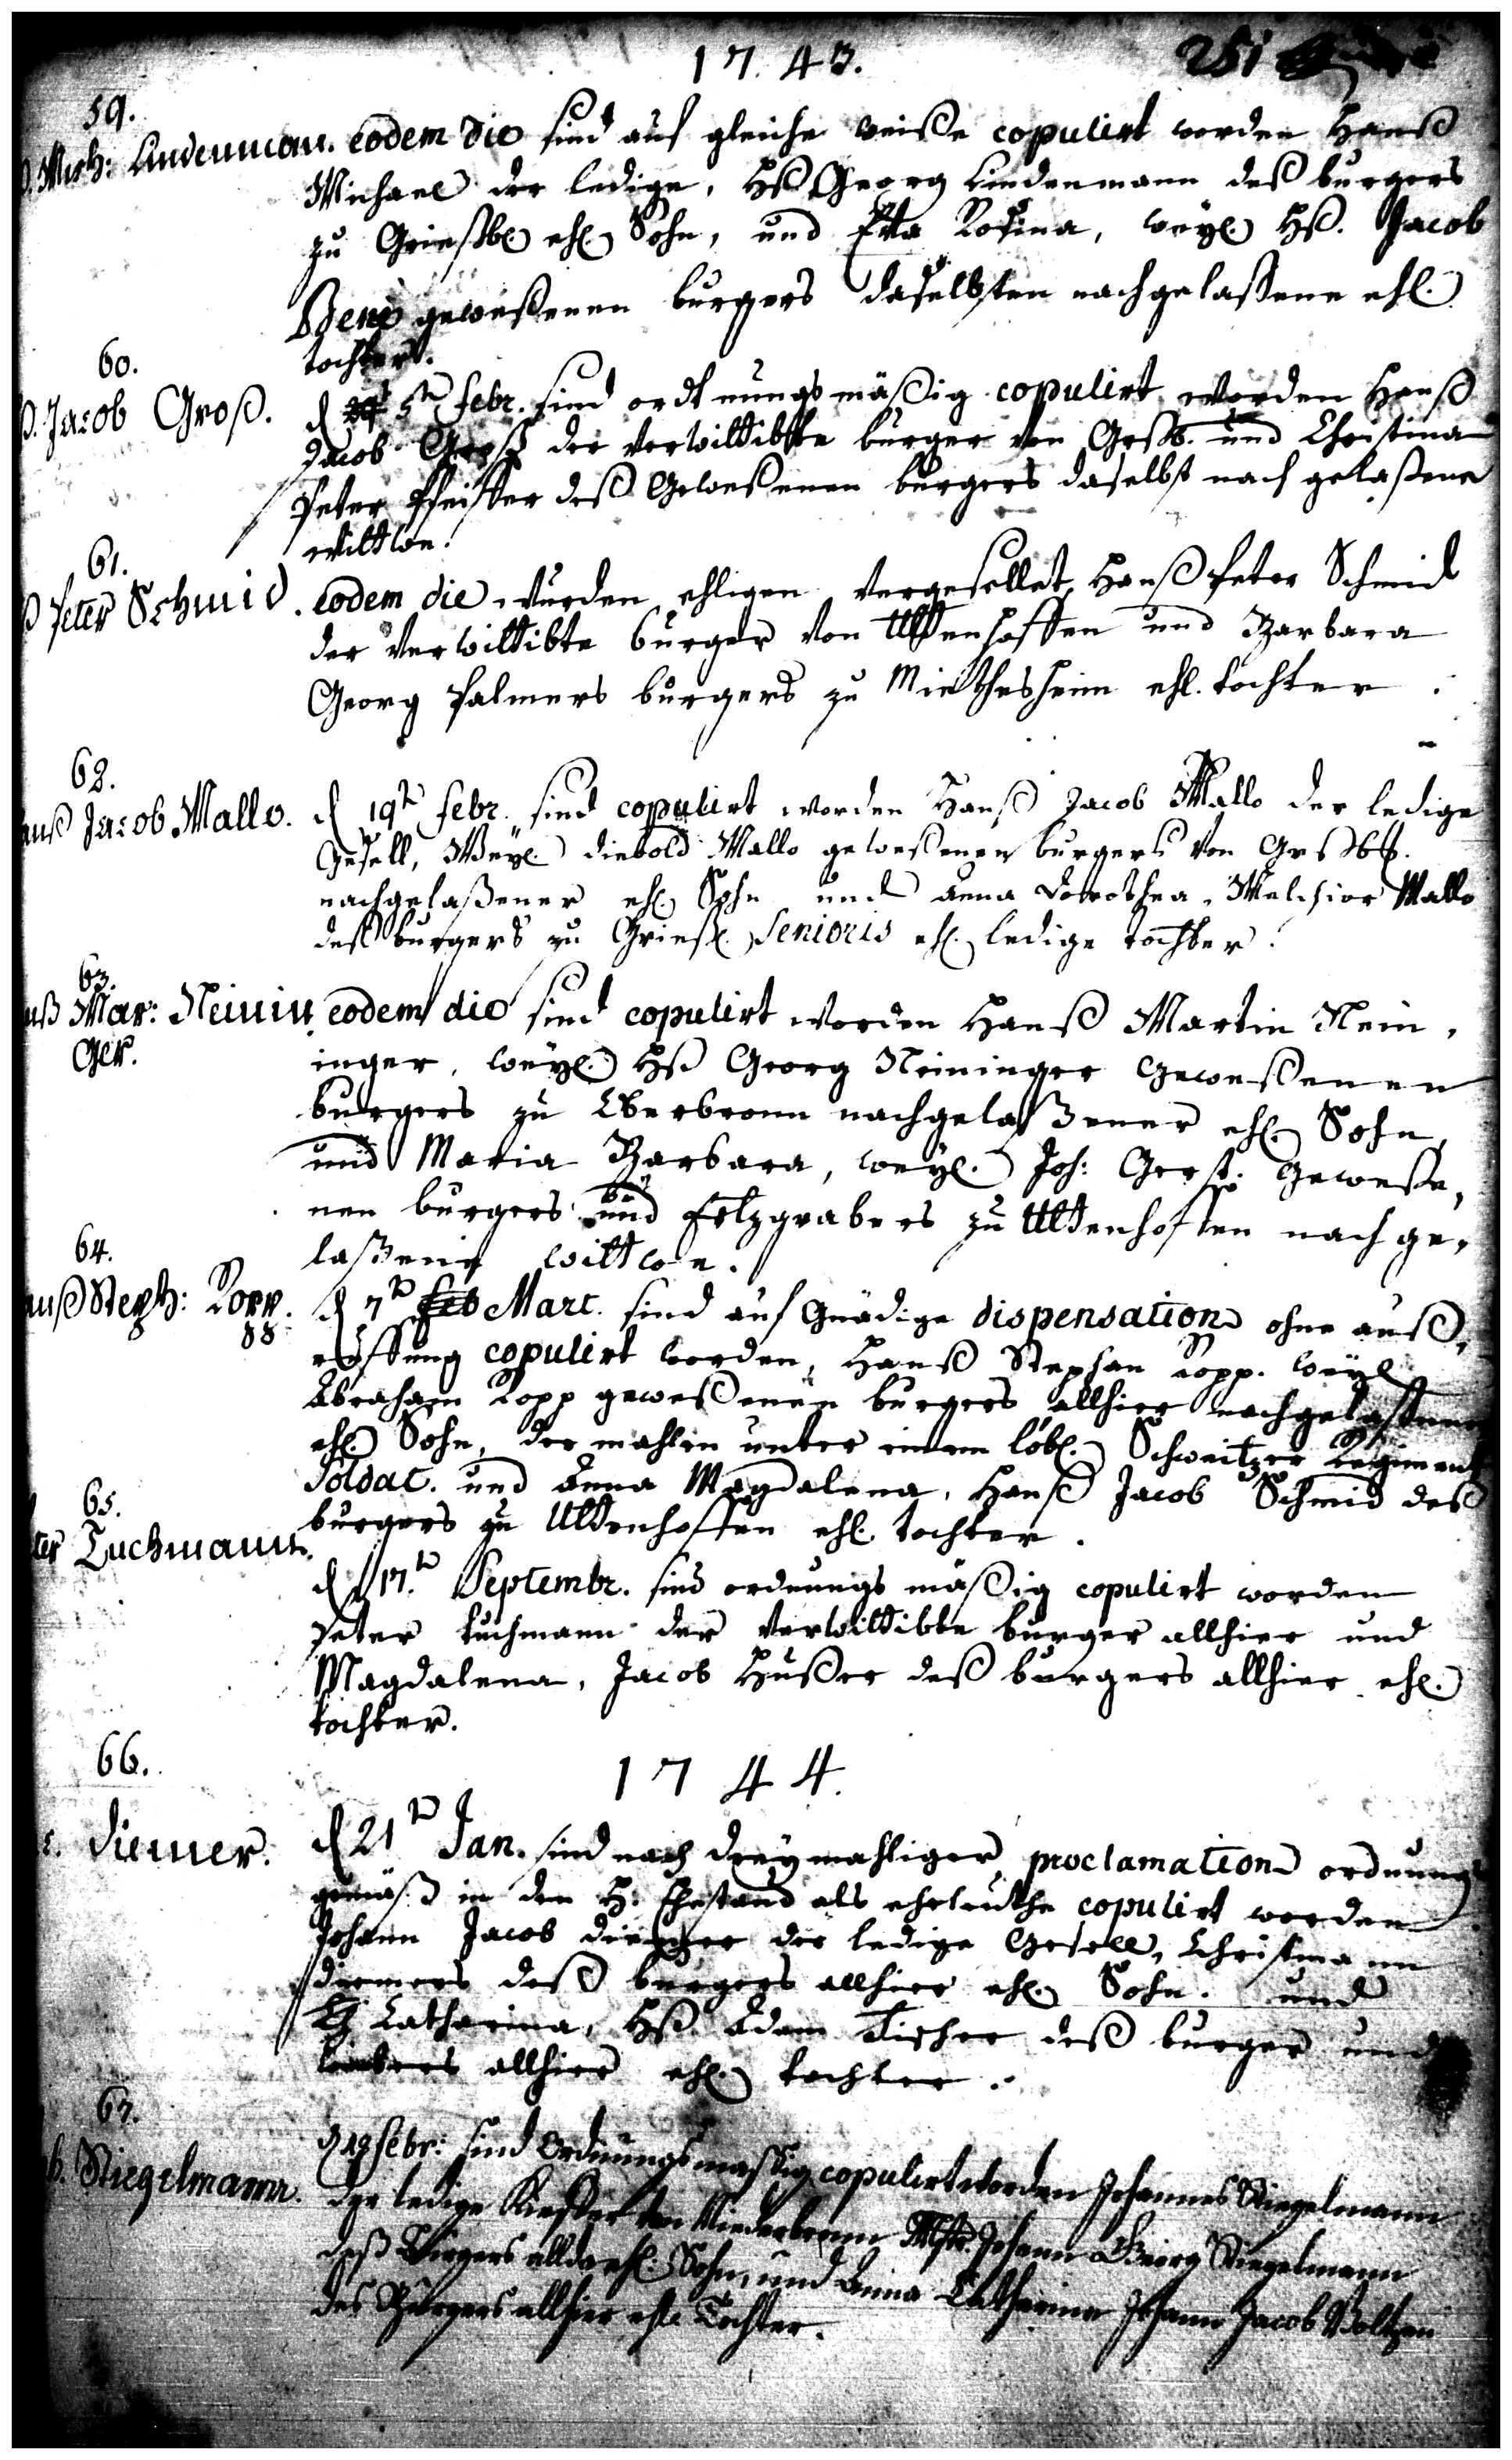 1743.
251
59.
Mich: Lindenman. eodem die sind auf gleiche weiße copulirt worden Hanß
Michael der ledige, Hß Georg Lindenmann deß burgers
zu Grießb. ehl. Sohn, und Eva Rosina, weyl. Hß. Jacob
geweßenen burgers daselbsten nachgelaßene ehl.
tochter.
60.
ß. Jacob Groß. d 5t febr. sind ordnungsmäßig copulirt worden Hanß
Jacob Groß der verwittibte burger von Grßb. und Christina
Peter Pfeiffer deß Geweßenen burgers daselbst nach gelaßene
wittwe.
61.
ß Peter Schmid. eodem die wurden ehligen vergesellet Hanß Peter Schmid
der verwittibte burger von Uttenhoffen und Barbara
Georg Palmers burgers zu Mietesheim ehl. tochter.
62.
anß Jacob Mallo. d 19t febr. sind copulirt worden Hanß Jacob Mallo der ledige
Gesell, Weyl. Diebold Mallo geweßenen burgers von
nachgelaßener ehl. Sohn und Anna Dorothea, Melchior Mallo
deß burgers zu Grieß. Senioris ehl. ledige tochter.
63.
nß Mar: Neinin eodem die sind copulirt worden Hanß Martin Nein,
Ger.
inger, weyl. Hß Georg Neininger Geweßenen
burgers zu Oberbronn nachgelaßener ehl. Sohn,
und Maria Barbara, weyl. Joh: Gerst. Geweße,
nen burgers und Ertzgrabers zu Uttenhoffen nach ge,
laßene wittwe.
64.
anß Steph: Ropp. d 7t Feb Mart. sind auf Gnädige dispensation ohne auß,
ruffung copulirt worden, Hanß Stephan Ropp. weyl.
Abraham Ropp geweßenen burgers allhier nachgelaßener
ehl. Sohn, der mahlen unter einem löbl. Schweitzer Regiment
Soldat. und Anna Magdalena, Hanß Jacob Schmid deß
burgers zu Uttenhoffen ehl. tochter.
65.
ter Tuchmann.
d 17.t Septembr. sind ordnungs mäßig copulirt worden
Peter tuchmann der verwittibte burger allhier und
Magdalena, Jacob Hußer deß burgers allhier ehl.
tochter.
1744.
66.
Diemer. d 21t Jan. sind nach dreymahliger proclamation ordnungs
gemäß in den H. Ehestand als eheleuthe copulirt worden
Johann Jacob Diemer der ledige Gesell, Christmann
Diemers deß burgers allhier ehl. Sohn. und
Catharina, Hß. Adam Fischer deß burger und
allhier ehl. tochter.
67.
b. Stiegelmann. d 19 febr: sind Ordnungsmassig copulirt worden Johannes Stiegelmann
der ledige Kiefer von Niederbronn Mstr. Johann Georg Stiegelmann
deß Bürgers allda ehl. Sohn, und Anna Catharina Johann Jacob Boltzen
des Bürgers allhier ehl. Tochter.